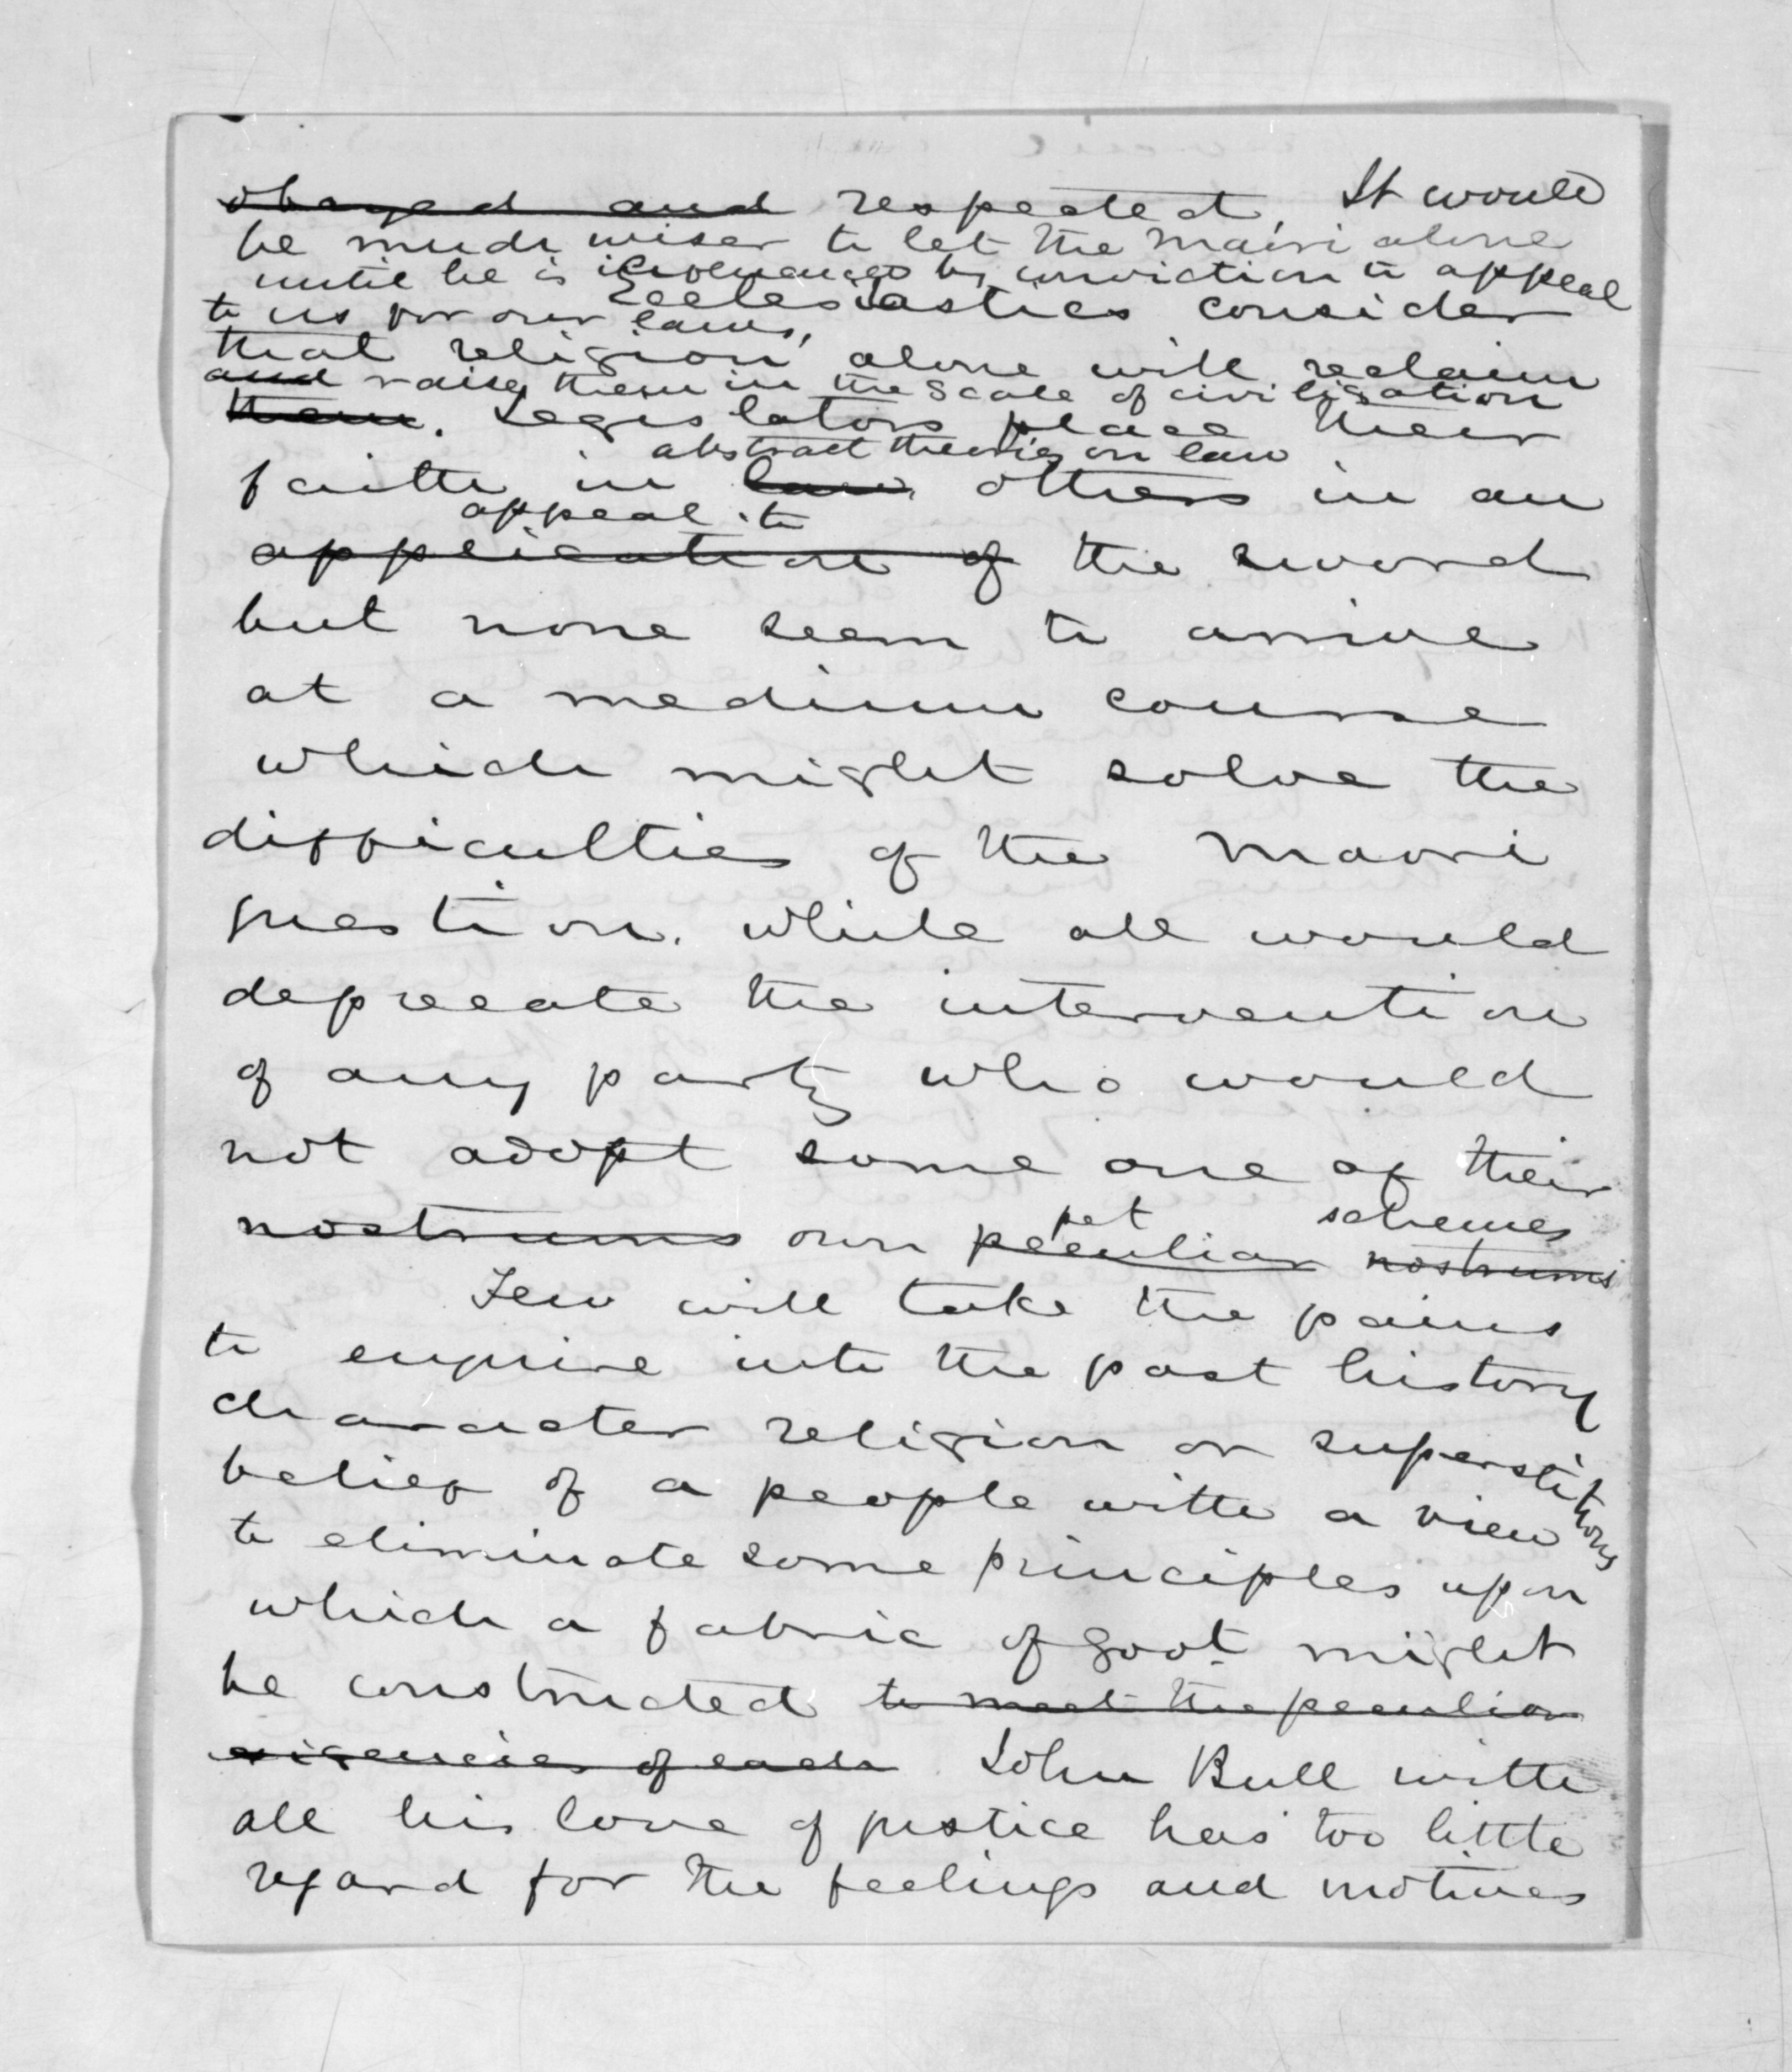 obeyed and respected. It would
be much wiser to let the Maori alone
until he is by conviction to appeal
to us for our laws,
Ecclesiastics consider
that religion alone will reclaim
and raise them in the scale of civilisation
them. Legislators place their
abstract theories on law
faith in law, others in an
appeal to
application of the sword
but none seem to arrive
at a medium course
which might solve the
difficulties of the Maori
question. While all would
deprecate the intervention
of any party who would
not adopt some one of their
pet schemes
nostrums own peculiar nostrums
Few will take the pains
to enquire into the past history
character religion or superstitions
belief of a people with a view
to eliminate some principles upon
which a fabric of Govt. might
be constructed to meet the peculiar
exigencies of each. John Bull with
all his love of justice has too little
regard for the feelings and motives